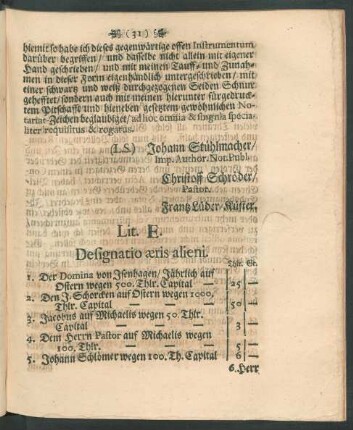 (31)
hiemit so habe ich dieses gegenwärtige offen Instrumentum
darüber begriffen/ und dasselbe nicht allein mit eigener
Hand geschrieben/ und mit meinen Tauff- und Zunah-
men in dieser Form eigenhändlich unterschrieben/ mit
einer schwartz und weiß durchgezogenen Seiden Schnur
gehefftet/ sondern auch mit meinen hierunter fürgedruck-
tem Pitschafft und hieneben gesetztem gewöhnlichen No-
tariat-Zeichen beglaubiget/ ad hoc omnia & singula specia-
liter requisitus & rogatus.
(L.S.) Johann Stühlmacher/
Imp. Author. Not. Publ.
Christoff Schröder/
Pastor.
Frantz Lüder Küster.
Lit. E.
Designatio æris alieni.
Thlr. Gr.
1. Der Domina von Isenhagen/ Jährlich auf
Ostern wegen 500. Thlr. Capital — 25 —
2. Den J. Schorcken auf Ostern wegen 1000.
Thlr. Capital — — — 50 —
3. Jacobus auf Michaelis wegen 50. Thlr.
Capital — — — 3 —
4. Dem Herrn Pastor auf Michaelis wegen
100. Thlr. — — — 5 —
5. Johann Schlömer wegen 100. Th. Capital 6 —
6. Herr